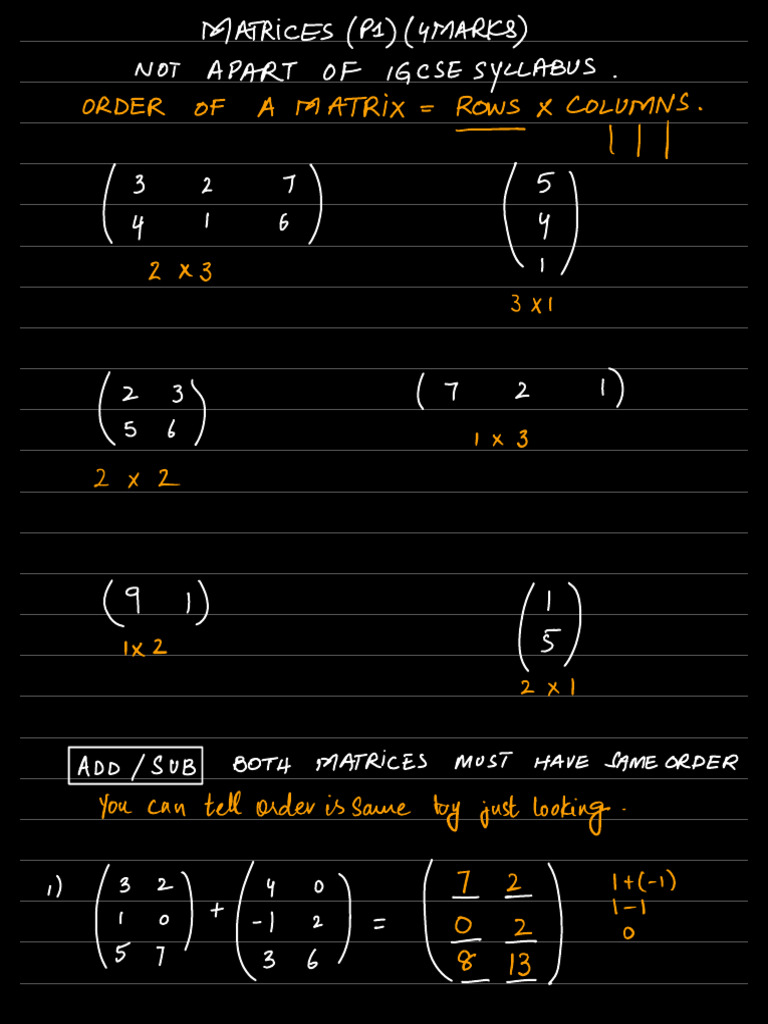 MATRICES (P1) (4MARKS)
NOT APART OF IGCSE SYLLABUS.
ORDER OF A MATRIX = ROWS X COLUMNS.
( 3 2 7 ) ( 5 )
( 4 1 6 ) ( 4 )
( 1 )
2 x 3
3 x 1
( 2 3 ) ( 7 2 1 )
( 5 6 )
1 x 3
2 x 2
( 9 1 ) ( 1 )
( 5 )
1 x 2
2 x 1
ADD / SUB BOTH MATRICES MUST HAVE SAME ORDER
You can tell order is same by just looking.
1) ( 3 2 ) + ( 4 0 ) = ( 7 2 ) 1+(-1)
( 1 0 ) ( -1 2 ) ( 0 2 ) 1-1
( 5 7 ) ( 3 6 ) ( 8 13 ) 0